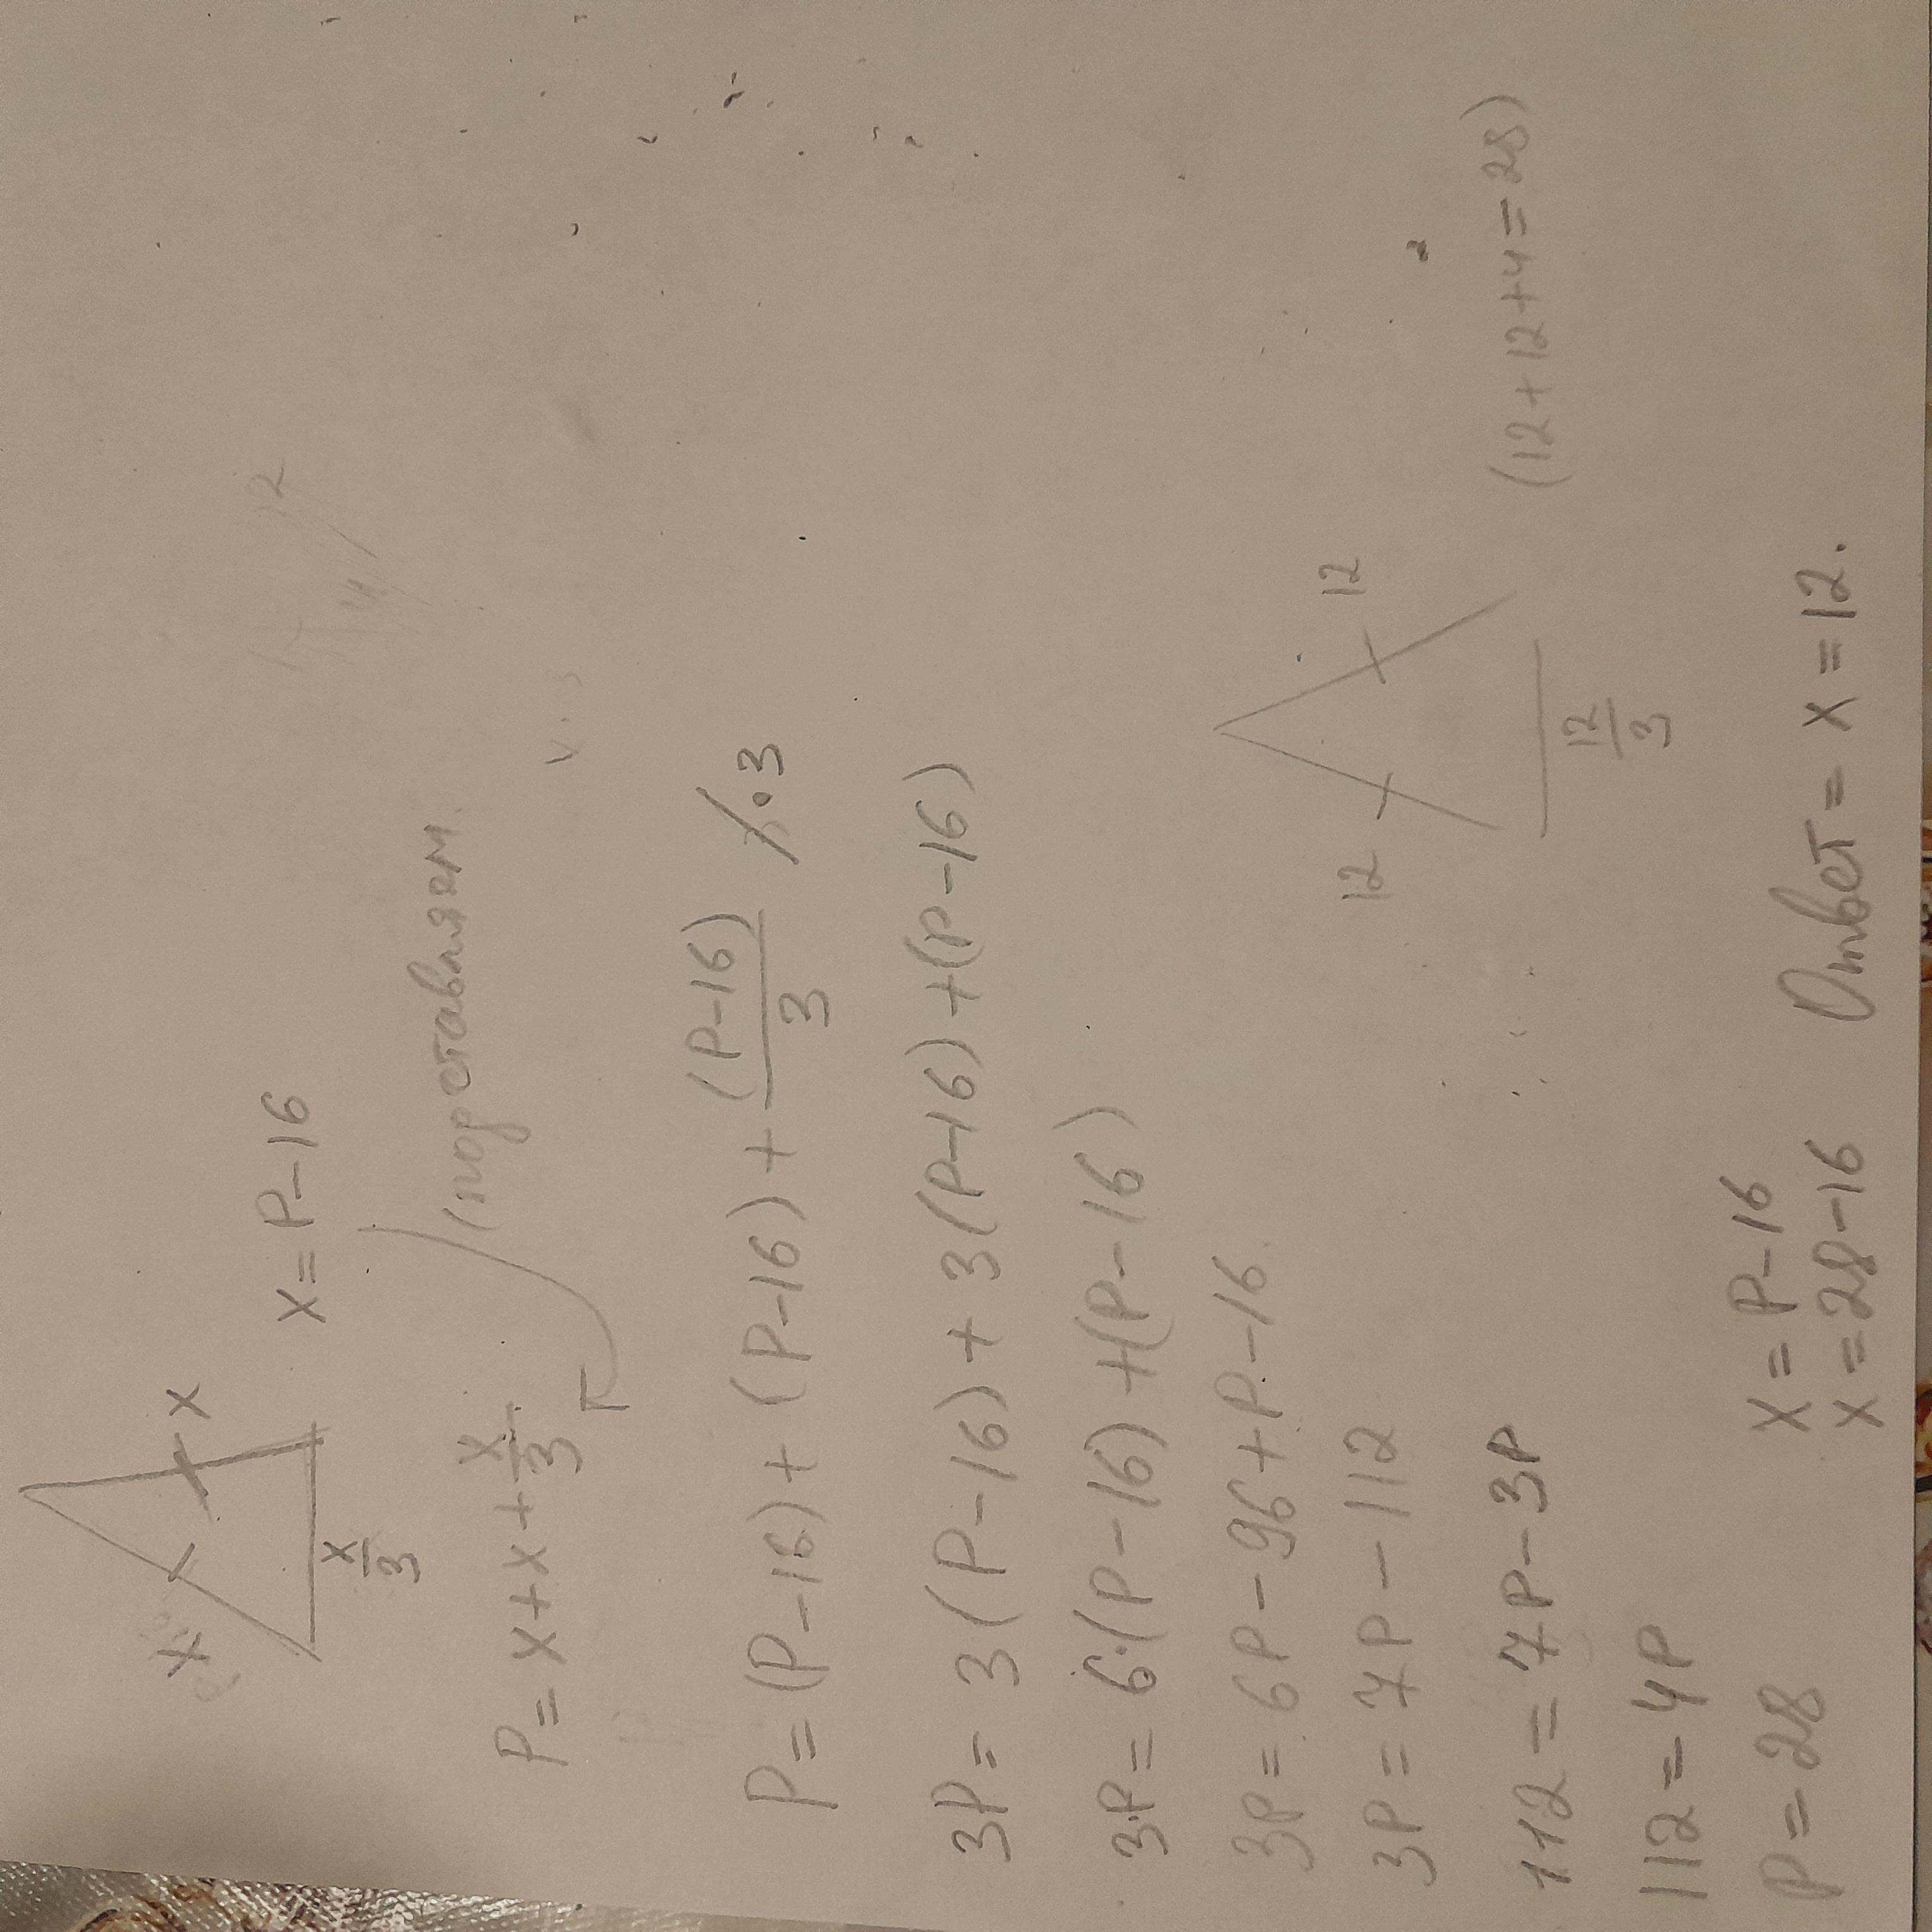 x x x = P-16
x/3
(подставляем.
P = x+x+x/3
P = (P-16) + (P-16) + (P-16)/3 /·3
3P = 3(P-16) + 3(P-16) + (P-16)
3P = 6·(P-16) + (P-16)
3P = 6P - 96 + P - 16
3P = 7P - 112
112 = 7P - 3P
12 12
12/3
(12+12+4=28)
112 = 4P
P = 28
x = P-16
x = 28-16 Ответ = x = 12.